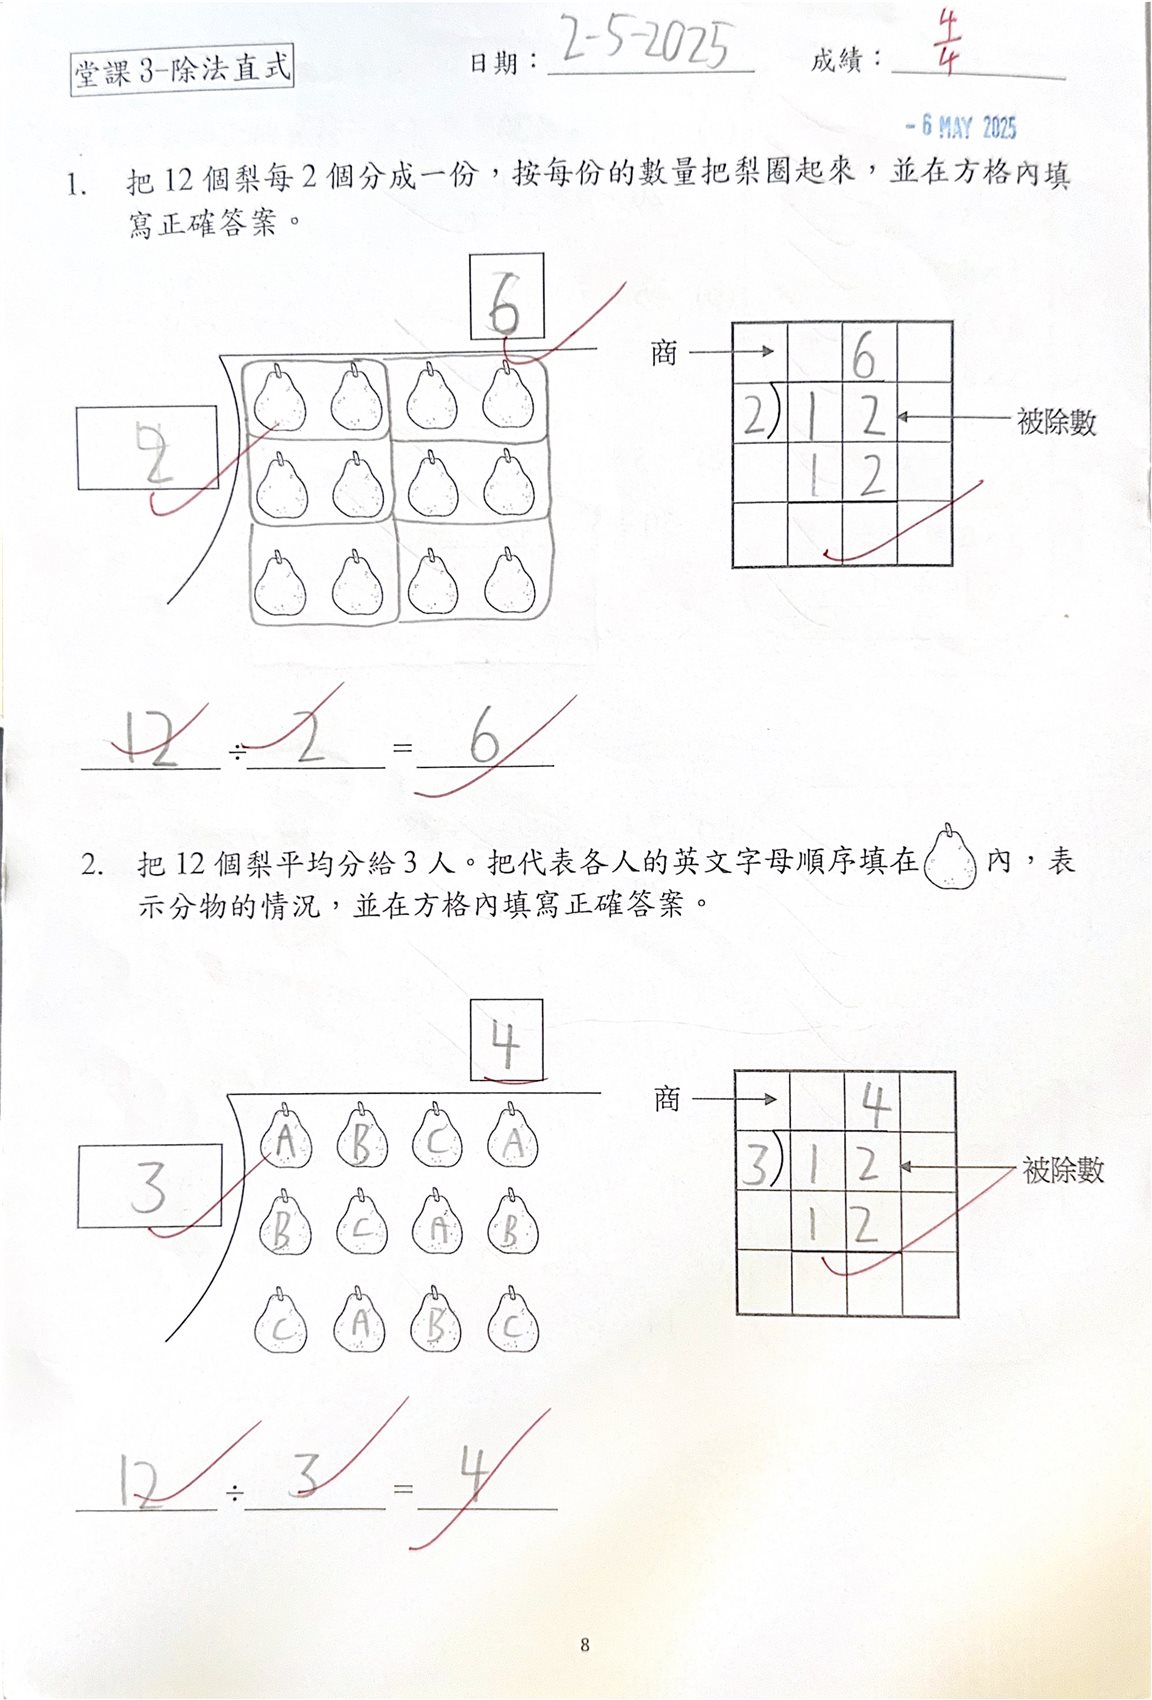 堂課 3-除法直式
日期：2-5-2025
成績：4/4
- 6 MAY 2025
1. 把 12 個梨每 2 個分成一份，按每份的數量把梨圈起來，並在方格內填
寫正確答案。
6
2
商 6
2) 1 2 被除數
1 2
12 ÷ 2 = 6
2. 把 12 個梨平均分給 3 人。把代表各人的英文字母順序填在 內，表
示分物的情況，並在方格內填寫正確答案。
4
3
A B C A
B C A B
C A B C
商 4
3) 1 2 被除數
1 2
12 ÷ 3 = 4
8